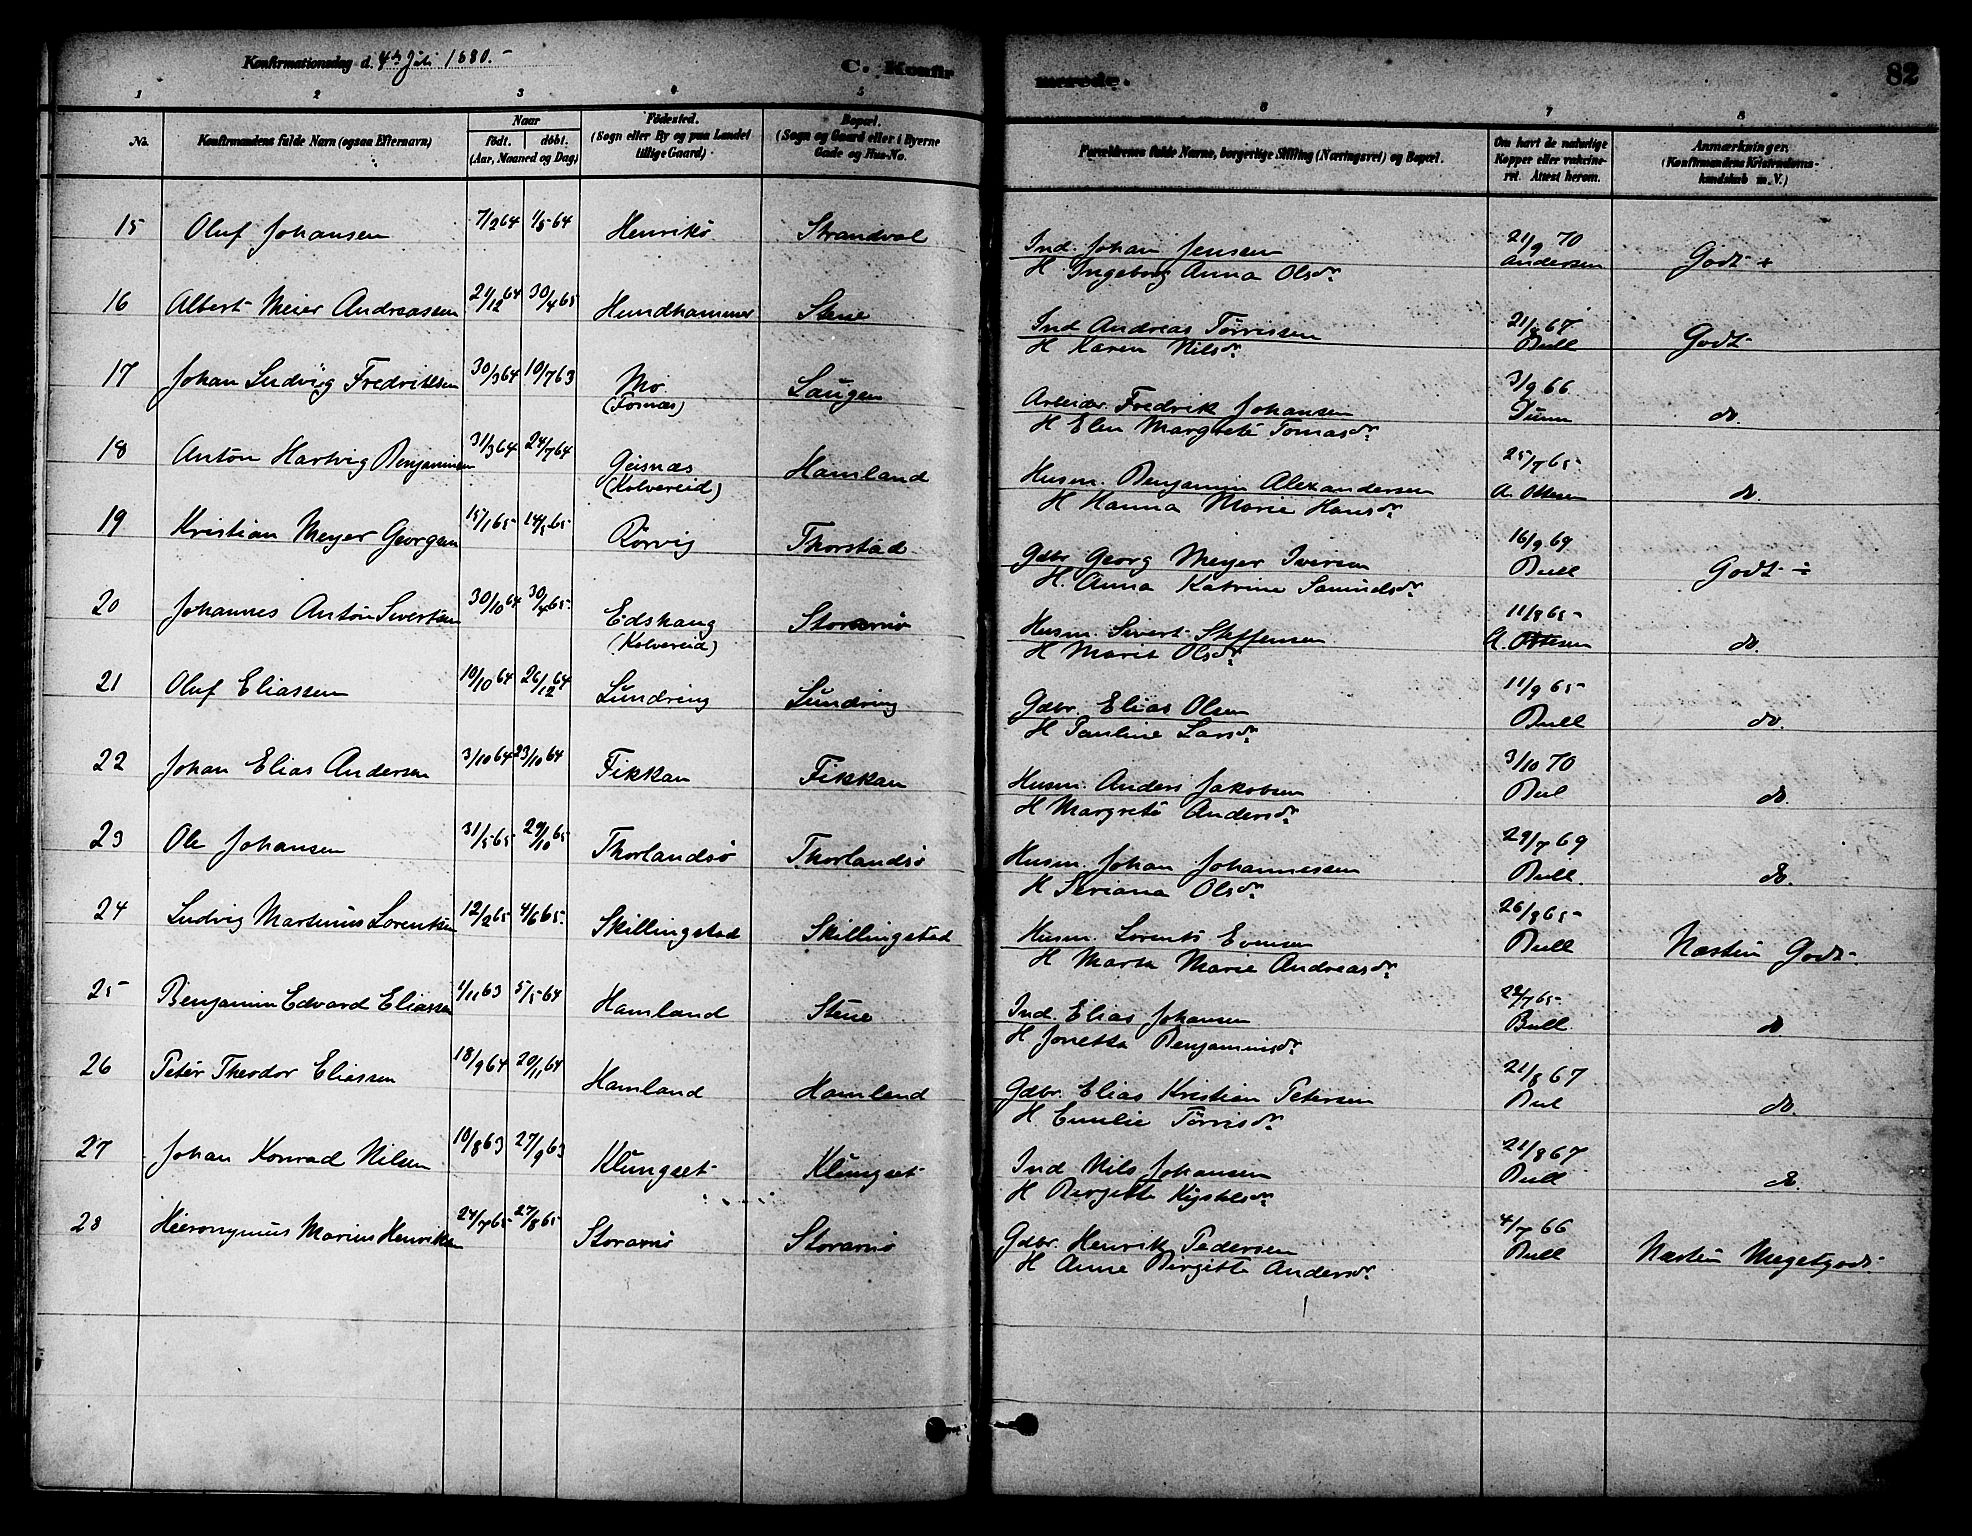 Konfirmationsdag d. 4de Juli 1880.
C. Konfir
merede.
82
1 2 3 4 5 6 7 8
No. Konfirmandens fulde Navn (ogsaa Efternavn) Naar født. døbt. (Aar, Maaned og Dag) Fødested. (Sogn eller By og paa Landet tillige Gaard) Bopæl. (Sogn og Gaard eller i Byerne Gade og Hus-No. Forældrenes fulde Navne, borgerlige Stilling (Næringsvei) og Bopæl. Om havt de naturlige Kopper eller vakcineret. Attest herom. Anmærkninger. (Konfirmandens Kristendomskundskab m. V.)
15 Oluf Johansen 7/2 64 1/5 64 Henrikø Strandval Ind. Johan Jensen 21/9 70 Godt +
H Ingeborg Anna Olsdr. Andersen
16 Albert Meier Andreassen 21/12 64 30/4 65 Hundhammer Stene Ind Andreas Tørrissen 21/8 67 Godt
H Karen Nilsdr. Bull
17 Johan Ludvig Fredriksen 30/3 64 10/7 63 Mo Laugen Arbeider Fredrik Johansen 3/9 66 do.
(Fosnæs) H Elen Margrete Tomasdr.
18 Anton Hartvig Benjaminsen 31/3 64 24/7 64 Geisnæs Hamland Husm. Benjamin Alexandersen 25/7 65 do.
(Kolvereid) H Hanna Marie Hansdr. A. Ottesen
19 Kristian Meyer Georgsen 15/1 65 14/5 65 Rørvig Thorstad Gdbr. Georg Meyer Iversen 16/9 69 Godt ÷
H. Anna Katrine Samundsdr. Bull
20 Johannes Anton Sivertsen 30/10 64 30/4 65 Edshaug Storarnø Husm. Sivert Steffensen 11/8 65 do.
(Kolvereid) H Marit Olsdr. A. Ottesen
21 Oluf Eliassen 10/10 64 26/12 64 Lundring Lundring Gdbr. Elias Olsen 11/9 65 do.
H Pauline Larsdr. Bull
22 Johan Elias Andersen 3/10 64 23/10 64 Fikkan Fikkan Husm. Anders Jakobsen 3/10 70 do.
H Margrete Andersdr. Bul
23 Ole Johansen 31/5 65 29/10 65 Thorlandsø Thorlandsø Husm. Johan Johannessen 29/7 69 do.
H Seriana Olsdr. Bull.
24 Ludvig Martinus Lorentsen 12/2 65 4/6 65 Skillingstad Skillingstad Husm. Lorents Evensen 26/8 65 Næsten Godt.
H Marta Marie Andreasdr. Bull
25 Benjamin Edvard Eliassen 1/11 63 5/5 64 Hamland Stene Ind. Elias Johansen 22/7 65 do
H Jonetta Benjaminsdr. Bull.
26 Peter Theodor Eliassen 18/9 64 20/11 64 Hamland Hamland Gdbr. Elias Kristian Petersen 21/8 67 do.
H Emilie Tørrisdr. Bul
27 Johan Konrad Nilsen 10/8 63 27/9 63 Klungset Klungset Ind Nils Johansen 21/8 67 do.
H Birgitte Kjeldsdr. Bull
28 Hieronymus Marius Henriksen 24/7 65 27/8 65 Storarnø Storarnø Gdbr. Henrik Pedersen 4/7 66 Næsten Megetgodt.
H Anne Birgitte Andersdr. Bull